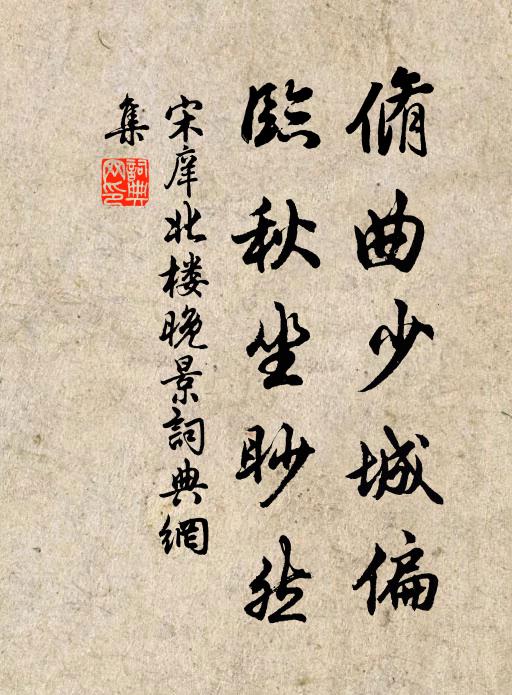 脩曲少城偏
臨秋坐眇然
宋庠北楼晚景詞典網
集
詞典网印